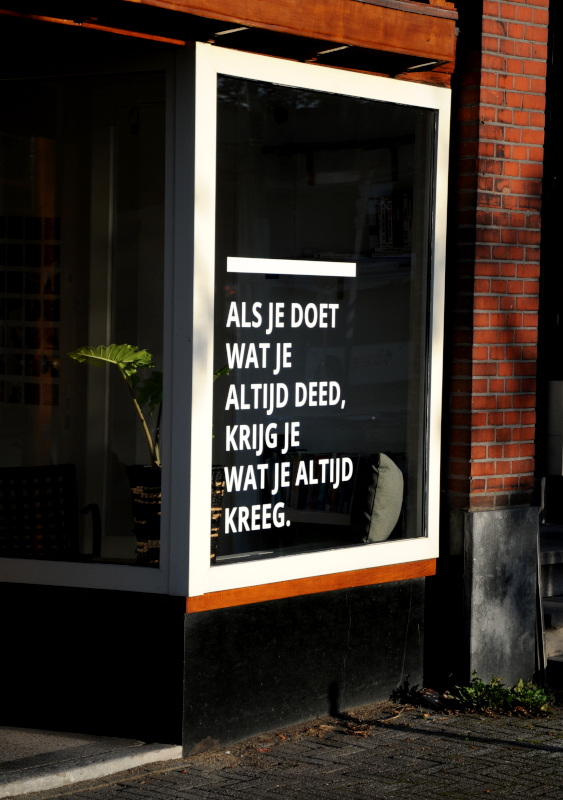 ALS JE DOET
WAT JE
ALTIJD DEED,
KRIJG JE
WAT JE ALTIJD
KREEG.